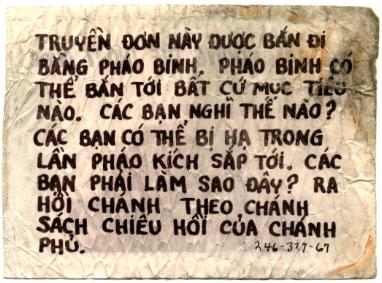 TRUYỀN ĐƠN NÀY ĐƯỢC BẮN ĐI
BẰNG PHÁO BINH. PHÁO BINH CÓ
THỂ BẮN TỚI BẤT CỨ MỤC TIÊU
NÀO. CÁC BẠN NGHĨ THẾ NÀO?
CÁC BẠN CÓ THỂ BỊ HẠ TRONG
LẦN PHÁO KÍCH SẮP TỚI. CÁC
BẠN PHẢI LÀM SAO ĐÂY? RA
HỒI CHÁNH THEO CHÁNH
SÁCH CHIÊU HỒI CỦA CHÁNH
PHỦ. 246-337-67